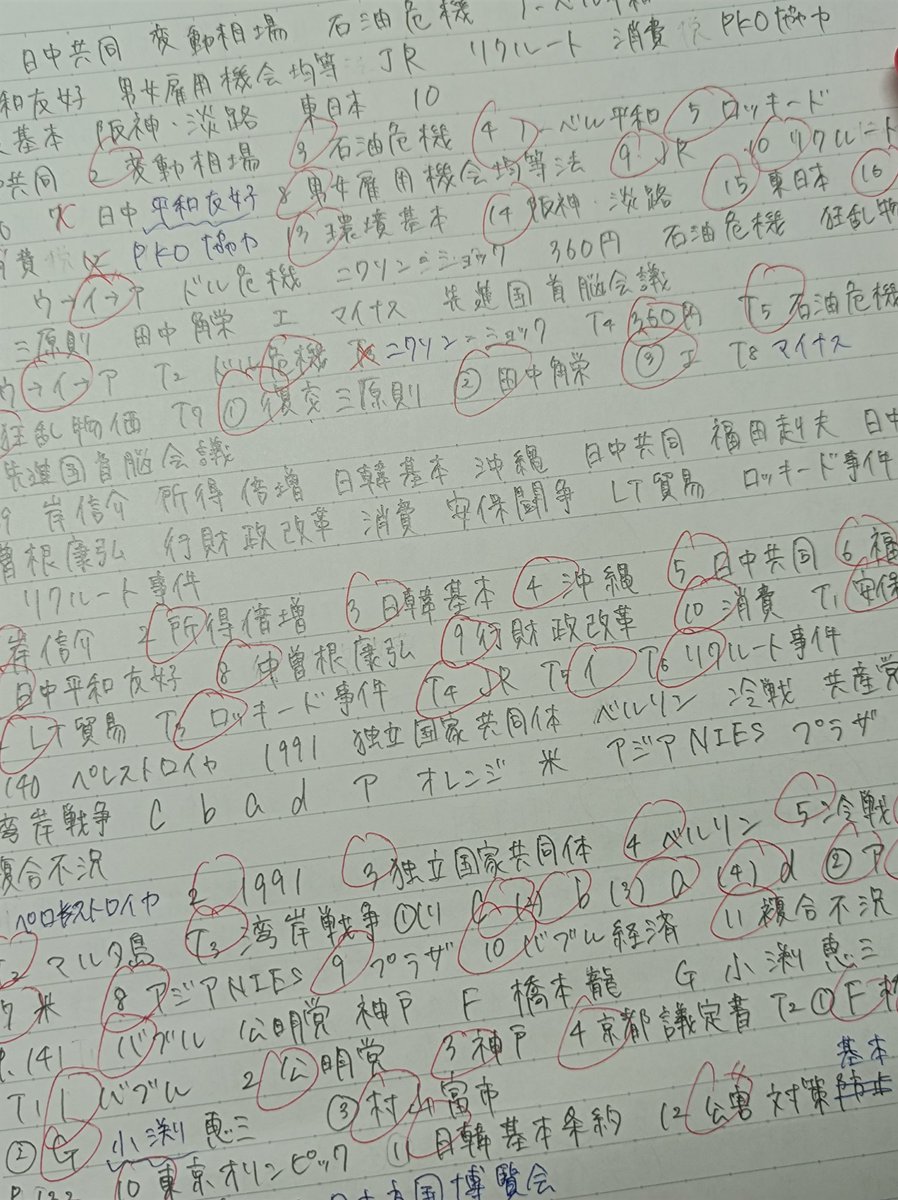 日中共同 変動相場 石油危機
和友好 男女雇用機会均等 JR リクルート 消費 PKO協力
基本 阪神・淡路 東日本 10
共同 2 変動相場 3 石油危機 4 ノーベル平和 5 ロッキード
日中平和友好 8 男女雇用機会均等法 9 JR 10 リクルート
費 PKO協力 13 環境基本 14 阪神・淡路 15 東日本 16
ウ→イ→ア ドル危機 ニクソン=ショック 360円 石油危機 狂乱物
三原則 田中角栄 エ マイナス 先進国首脳会議
ウ→イ→ア T2 ドル危機 ニクソン=ショック T4 360円 T5 石油危機
狂乱物価 T7 ① 復交三原則 ② 田中角栄 ③ エ T8 マイナス
先進国首脳会議
岸信介 所得倍増 日韓基本 沖縄 日中共同 福田赳夫 日中
曽根康弘 行財政改革 消費 安保闘争 LT貿易 ロッキード事件
リクルート事件
岸信介 2 所得倍増 3 日韓基本 4 沖縄 5 日中共同 6 福
日中平和友好 8 中曽根康弘 9 行財政改革 10 消費 T1 安保
LT貿易 T3 ロッキード事件 T4 JR T5 イ T6 リクルート事件
140 ペレストロイカ 1991 独立国家共同体 ベルリン 冷戦 共産党
湾岸戦争 C b a d ア オレンジ 米 アジアNIES プラザ
複合不況
2 1991 3 独立国家共同体 4 ベルリン 5 冷戦
T2 マルタ島 T3 湾岸戦争 ①(1) C (2) b (3) a (4) d ② ア
7 米 8 アジアNIES 9 プラザ 10 バブル経済 11 複合不況
P.141 バブル 公明党 神戸 F 橋本龍 G 小渕恵三
T1 1 バブル 2 公明党 3 神戸 4 京都議定書 T2 ① F 橋
② G 小渕恵三 ③ 村山富市 基本
10 東京オリンピック 11 日韓基本条約 12 公害対策
国博覧会